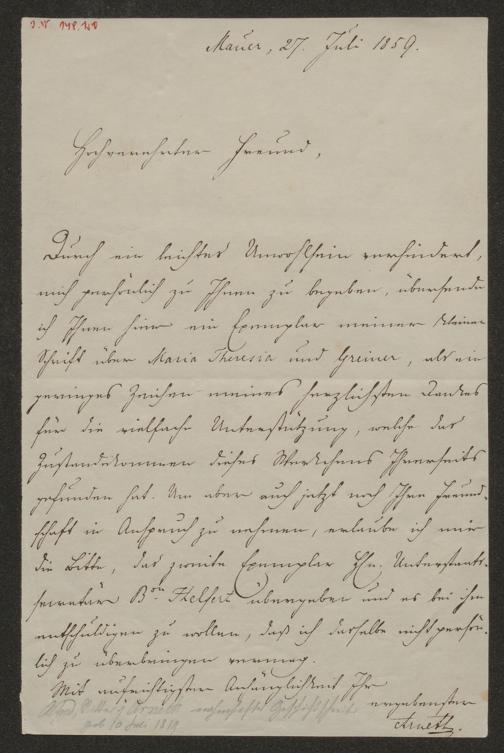 I.N. 148.140
Mauer, 27. Juli 1859.
Hochverehrter Freund,
Durch ein leichtes Unwohlsein verhindert,
mich persönlich zu Ihnen zu begeben, übersende
ich Ihnen hier ein Exemplar meiner kleinen
Schrift über Maria Theresia und Greiner, als ein
geringes Zeichen meines herzlichsten Dankes
für die vielfache Unterstützung, welche das
Zustandekommen dieses Werkchens Ihrerseits
gefunden hat. Um aber auch jetzt noch Ihre Freund-
schaft in Anspruch zu nehmen, erlaube ich mir
die Bitte, das zweite Exemplar Hn. Unterstaats-
secretär Bon Helfert übergeben und es bei ihm
entschuldigen zu wollen, daß ich dasselbe nicht persön-
lich zu überbringen vermag.
Mit aufrichtigster Anhänglichkeit Ihr
ergebenster
Arneth.
Arneth
geb 10 Juli 1819